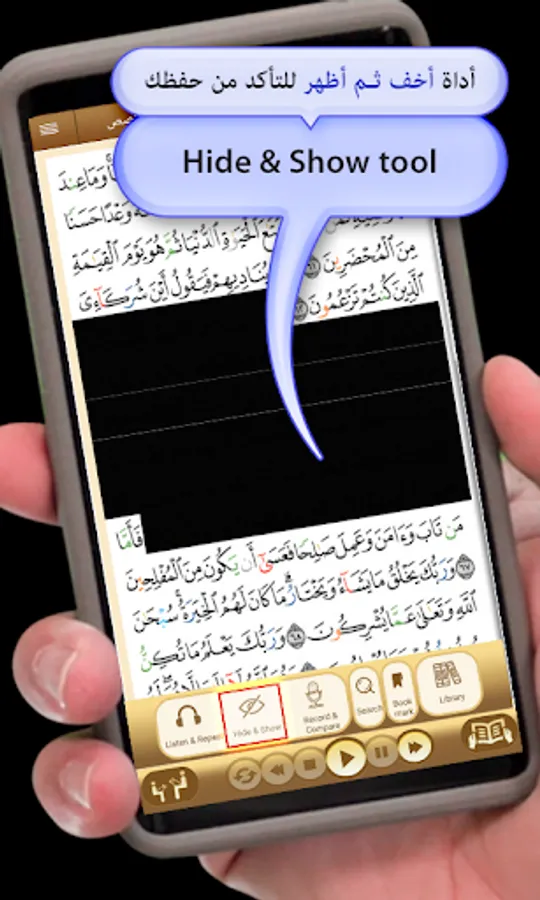 أداة أخف ثم أظهر للتأكد من حفظك
Hide & Show tool
وَمَا عِندَ
وَعْدًا حَسَنًا
ٱلْحَيَوٰةِ ٱلدُّنْيَا ثُمَّ هُوَ يَوْمَ ٱلْقِيَٰمَةِ
مِنَ ٱلْمُحْضَرِينَ ٦١ يُنَادِيهِمْ فَيَقُولُ أَيْنَ شُرَكَآءِىَ
ٱلَّذِينَ كُنتُمْ تَزْعُمُونَ
فَأَمَّا
مَن تَابَ وَءَامَنَ وَعَمِلَ صَٰلِحًا فَعَسَىٰٓ أَن يَكُونَ مِنَ ٱلْمُفْلِحِينَ
٦٧ وَرَبُّكَ يَخْلُقُ مَا يَشَآءُ وَيَخْتَارُ مَا كَانَ لَهُمُ ٱلْخِيَرَةُ سُبْحَٰنَ
ٱللَّهِ وَتَعَٰلَىٰ عَمَّا يُشْرِكُونَ ٦٨ وَرَبُّكَ يَعْلَمُ مَا تُكِنُّ
Listen & Repeat
Hide & Show
Record & Compare
Search
Book mark
Library